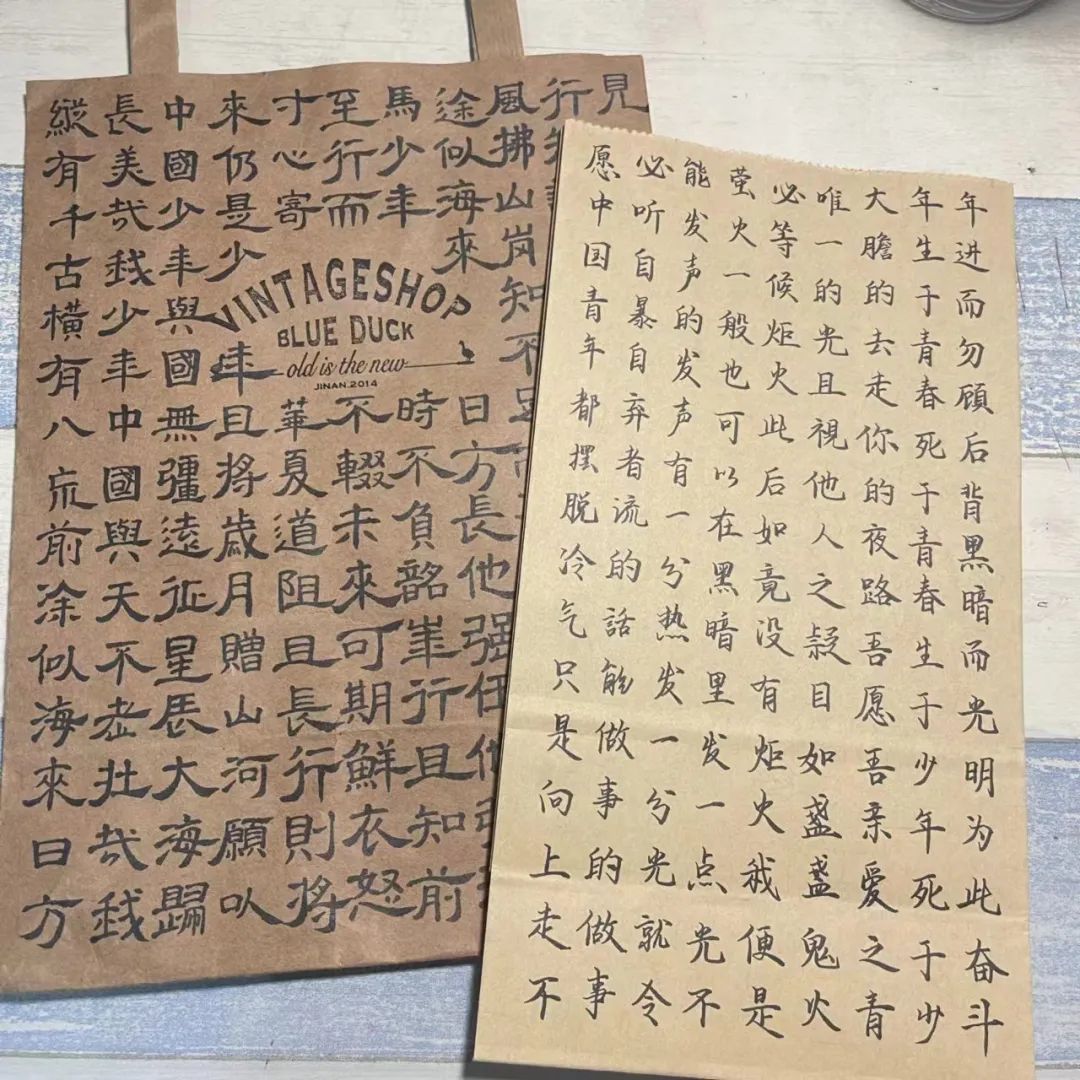 縱有千古横有八荒前涂似海來日方
長美哉我少年中國與天不老壯哉我
中國少年與國無疆遠征星辰大海歸
來仍是少年且將歲月贈山河願以
寸心寄華夏道阻且長行則將
至行而不輟未來可期鮮衣怒
馬少年時不負韶華行且知前
途似海來日方長他强任他
風拂山岗知不足
行
見
VINTAGESHOP
BLUE DUCK
old is the new
JINAN.2014
愿中国青年都摆脱冷气只是向上走不
必听自暴自弃者流的話能做事的做事
能发声的发声有一分热发一分光就令
萤火一般也可以在黑暗里发一点光不
必等候炬火此后如竟没有炬火我便是
唯一的光且視他人之疑目如盏盏鬼火
大膽的去走你的夜路吾愿吾亲爱之青
年生于青春死于青春生于少年死于少
年进而勿顾后背黑暗而光明为此奋斗